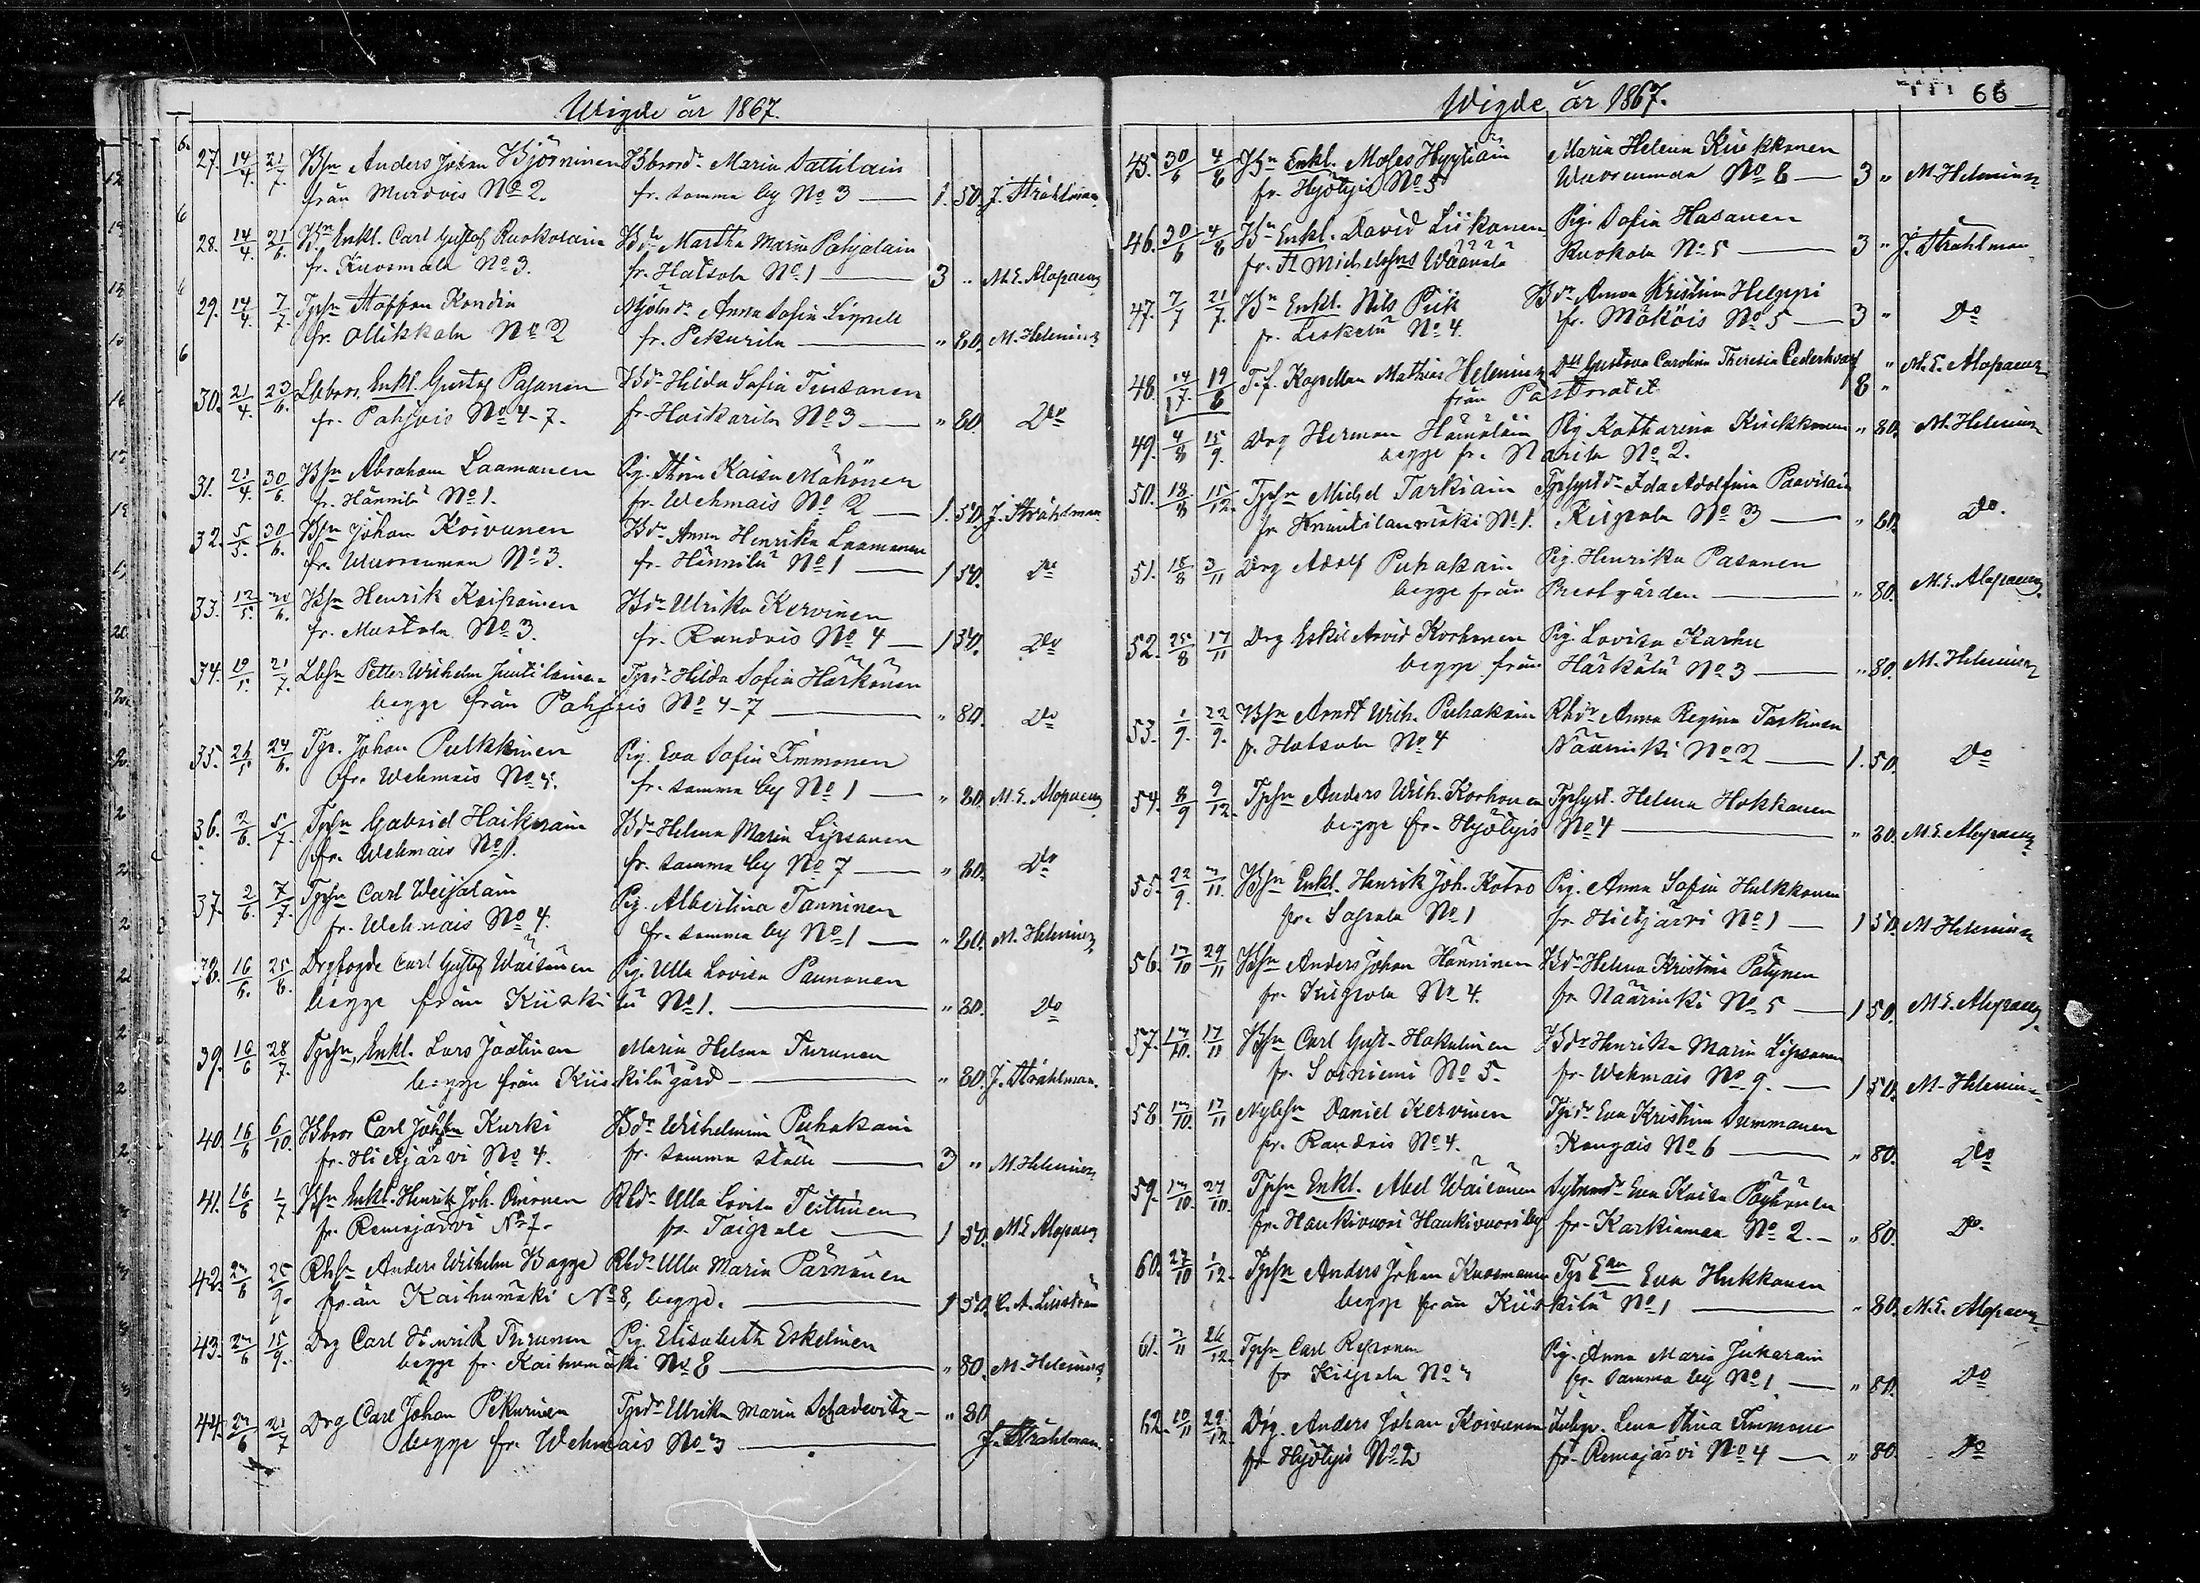 Wigde år 1867.
27. 14/4. 21/7. Bsn Anders Johan Björninen Bbrord. Maria Tattilain
från Murdois No 2. fr. samma by No 3 — 1. 50. J. Stråhlman.
28. 14/4. 21/6. Bsn Enkl. Carl Gustaf Ruokolain Bdr Martha Maria Pohjalain
fr. Kuosmala No 3. fr. Hatsola No 1 — 3 „ M. E. Alopaeus
29. 14/4 7/7. Tpsn Staffan Kondia Mjölnd. Anna Sofia Lignell
fr. Ollikkala No 2 fr. Pekurila — „ 80. M. Helenius
30. 21/4. 23/6. Enkl. Gustaf Pasanen Bdr Hilda Sofia Tiusanen
fr. Pahjois No 4-7. fr. Haikarila No 3 — „ 80. Do
31. 21/4. 30/6. Bsn Abraham Laamanen Pig. Stina Kaisa Mähönen
fr. Hännilä No 1. fr. Wehmais No 2 — 1. 50. J. Stråhlman.
32. 5/5. 30/6. Bsn Johan Koivunen Bdr Anna Henrika Laamanen
fr. Wuorenmaa No 3. fr. Hännilä No 1 — 1 50. Do
33. 12/5. Bsn Henrik Kaipainen Bdr Ulrika Kervinen
fr. Mustola No 3. fr. Randois No 4 — 1 50. Do
34. 19/5. 21/7. Lbsn Petter Wilhelm Juutilainen Tpdr Hilda Sofia Härkönen
begge från Pahjois No 4-7 — „ 80. Do
35. 26/5 24/6. Tpr. Johan Pulkkinen Pig. Eva Sofia Immonen
fr. Wehmais No 4. fr. samma by No 1 — „ 80. M. E. Alopaeus
36. 2/6. 5/7. Tpsn Gabriel Haikarain Bdr Helena Maria Lipsanen
fr. Wehmais No 1. fr. samma by No 7 — „ 80. Do
37. 2/6. 7/7. Tpsn Carl Weijalain Pig. Albertina Tanninen
fr. Wehmais No 4. fr. samma by No 1 — „ 80. M. Helenius
38. 16/6. 25/8. Drgfogde Carl Gustaf Wäisänen Pig. Ulla Lovisa Paunonen
begge från Kiiskilä No 1. — „ 80. Do
39. 16/6 28/7. Tpsn, Enkl. Lars Jäntinen Maria Helena Turunen
begge från Kiiskilä gård — „ 80. J. Stråhlman.
40. 16/6 6/10. Bbror Carl Johan Kurki Bdr Wilhelmina Puhakain
fr. Hietjärvi No 4. fr. samma ställe — 3 „ M. Helenius
41. 16/6 1/7 Bsn Enkl. Henrik Joh. Oinonen Rbdr Ulla Lovisa Teittinen
fr. Remojärvi No 7. fr. Taipale — 1 50. M. E. Alopaeus
42. 25/9. Rbsn Anders Wilhelm Bagge Rbdr Ulla Maria Pärnänen
från Kaihumäki No 8, begge. — 1 50.
43. 15/9. Drg Carl Henrik Turunen Pig. Elisabeth Eskelinen
begge fr. Kaihumäki No 8 — „ 80. M. Helenius
44. 21/7 Drg Carl Johan Pekurinen Tpdr Ulrika Maria Schadewitz — „ 80
begge fr. Wehmais No 3 — J. Stråhlman.
Wigde år 1867.
66
45. 30/6 4/8 Bsn Enkl. Moses Hyytiäin Maria Helena Kiukkonen
fr. Hyötyis No 5 Wuorenmaa No 6 — 3 „ M. Helenius
46. 30/6 4/8 Bsn Enkl. David Liikanen Pig. Sofia Hasanen
fr. St Michels Ruokola No 5 — 3 „ J. Stråhlman
47. 7/7 21/7. Bsn Enkl. Nils Piik Bdr Anna Kristina Helppi
fr. Leskelä No 4. fr. Mököis No 5 — 3 „ Do
48. 14/7. T.f. Kapellan Mathias Helenius, Dll Gustava Carolina Theresia Cederhvarf „ M. E. Alopaeus
från Pastoratet 8 „
49. 4/8 15/9. Drg Herman Hämäläin Pig Katharina Kiukkonen „ 80. M. Helenius
begge fr. Narila No 2.
50. 18/8 15/12. Tpsn Michel Tarkiain Ida Adolfina Paavilain
fr Knuutilanmäki No 1. Kiipala No 3 — „ 80. Do.
51. 18/8 3/11 Drg Adolf Puhakain Pig. Henrika Pasanen
begge från Prestgården — „ 80. M. E. Alopaeus
52. 25/8 17/11 Drg Eskil Arvid Korhonen Pig. Lovisa Karhu
begge från Härkälä No 3 — „ 80. M. Helenius
53. 1/9. 22/9. Bsn Arndt Wilh. Puhakain Rbdr Anna Regina Tarkinen
fr. Hatsola No 4 Näärinki No 2 — 1. 50. Do
54. 8/9 9/12. Tpsn Anders Wilh. Korhonen Helena Hokkanen
begge fr. Hyötyis No 4 — „ 80. M. E. Alopaeus
55. 22/9. Bsn Enkl. Henrik Joh. Kotro Pig. Anna Sofia Hulkkonen
fr. Sapala No 1 fr Hietjärvi No 1 — 1 50. M Helenius
56. 29/11 Bsn Anders Johan Hänninen Bdr Helena Kristina Pöllynen
fr. Kiipala No 4. fr Näärinki No 5 — 1 50. M. E. Alopaeus
57. 17/11 Bsn Carl Gust. Hakulinen Bdr Henrika Maria Lipsanen
fr. Soiniemi No 5. fr. Wehmais No 9. — 1 50. M. Helenius
58 17/11 Nybsn Daniel Kervinen Tpdr Eva Kristina Summanen
fr. Randois No 4. Kangais No 6 — „ 80. Do
59. 27/10. Tpsn Enkl. Abel Wäisänen Eva Kaisa Pöyhönen
fr. Haukivuori Haukivuori by fr. Karkiamaa No 2. — „ 80. Do.
60. 27/10 1/12. Tpsn Anders Johan Kuosmanen Tpr Ean Eva Hukkanen
begge från Kiiskilä No 1 — „ 80. M. E. Alopaeus
61. 26/12. Tpsn Carl Reponen Pig. Anna Maria Jukarain
fr Kiipala No fr. samma by No 1. — „ 80. Do
62. 10/11 Drg. Anders Johan Koivunen Inhyr. Lena Stina Immonen
fr Hyötyis No 2 fr. Remojärvi No 4 — „ 80. Do